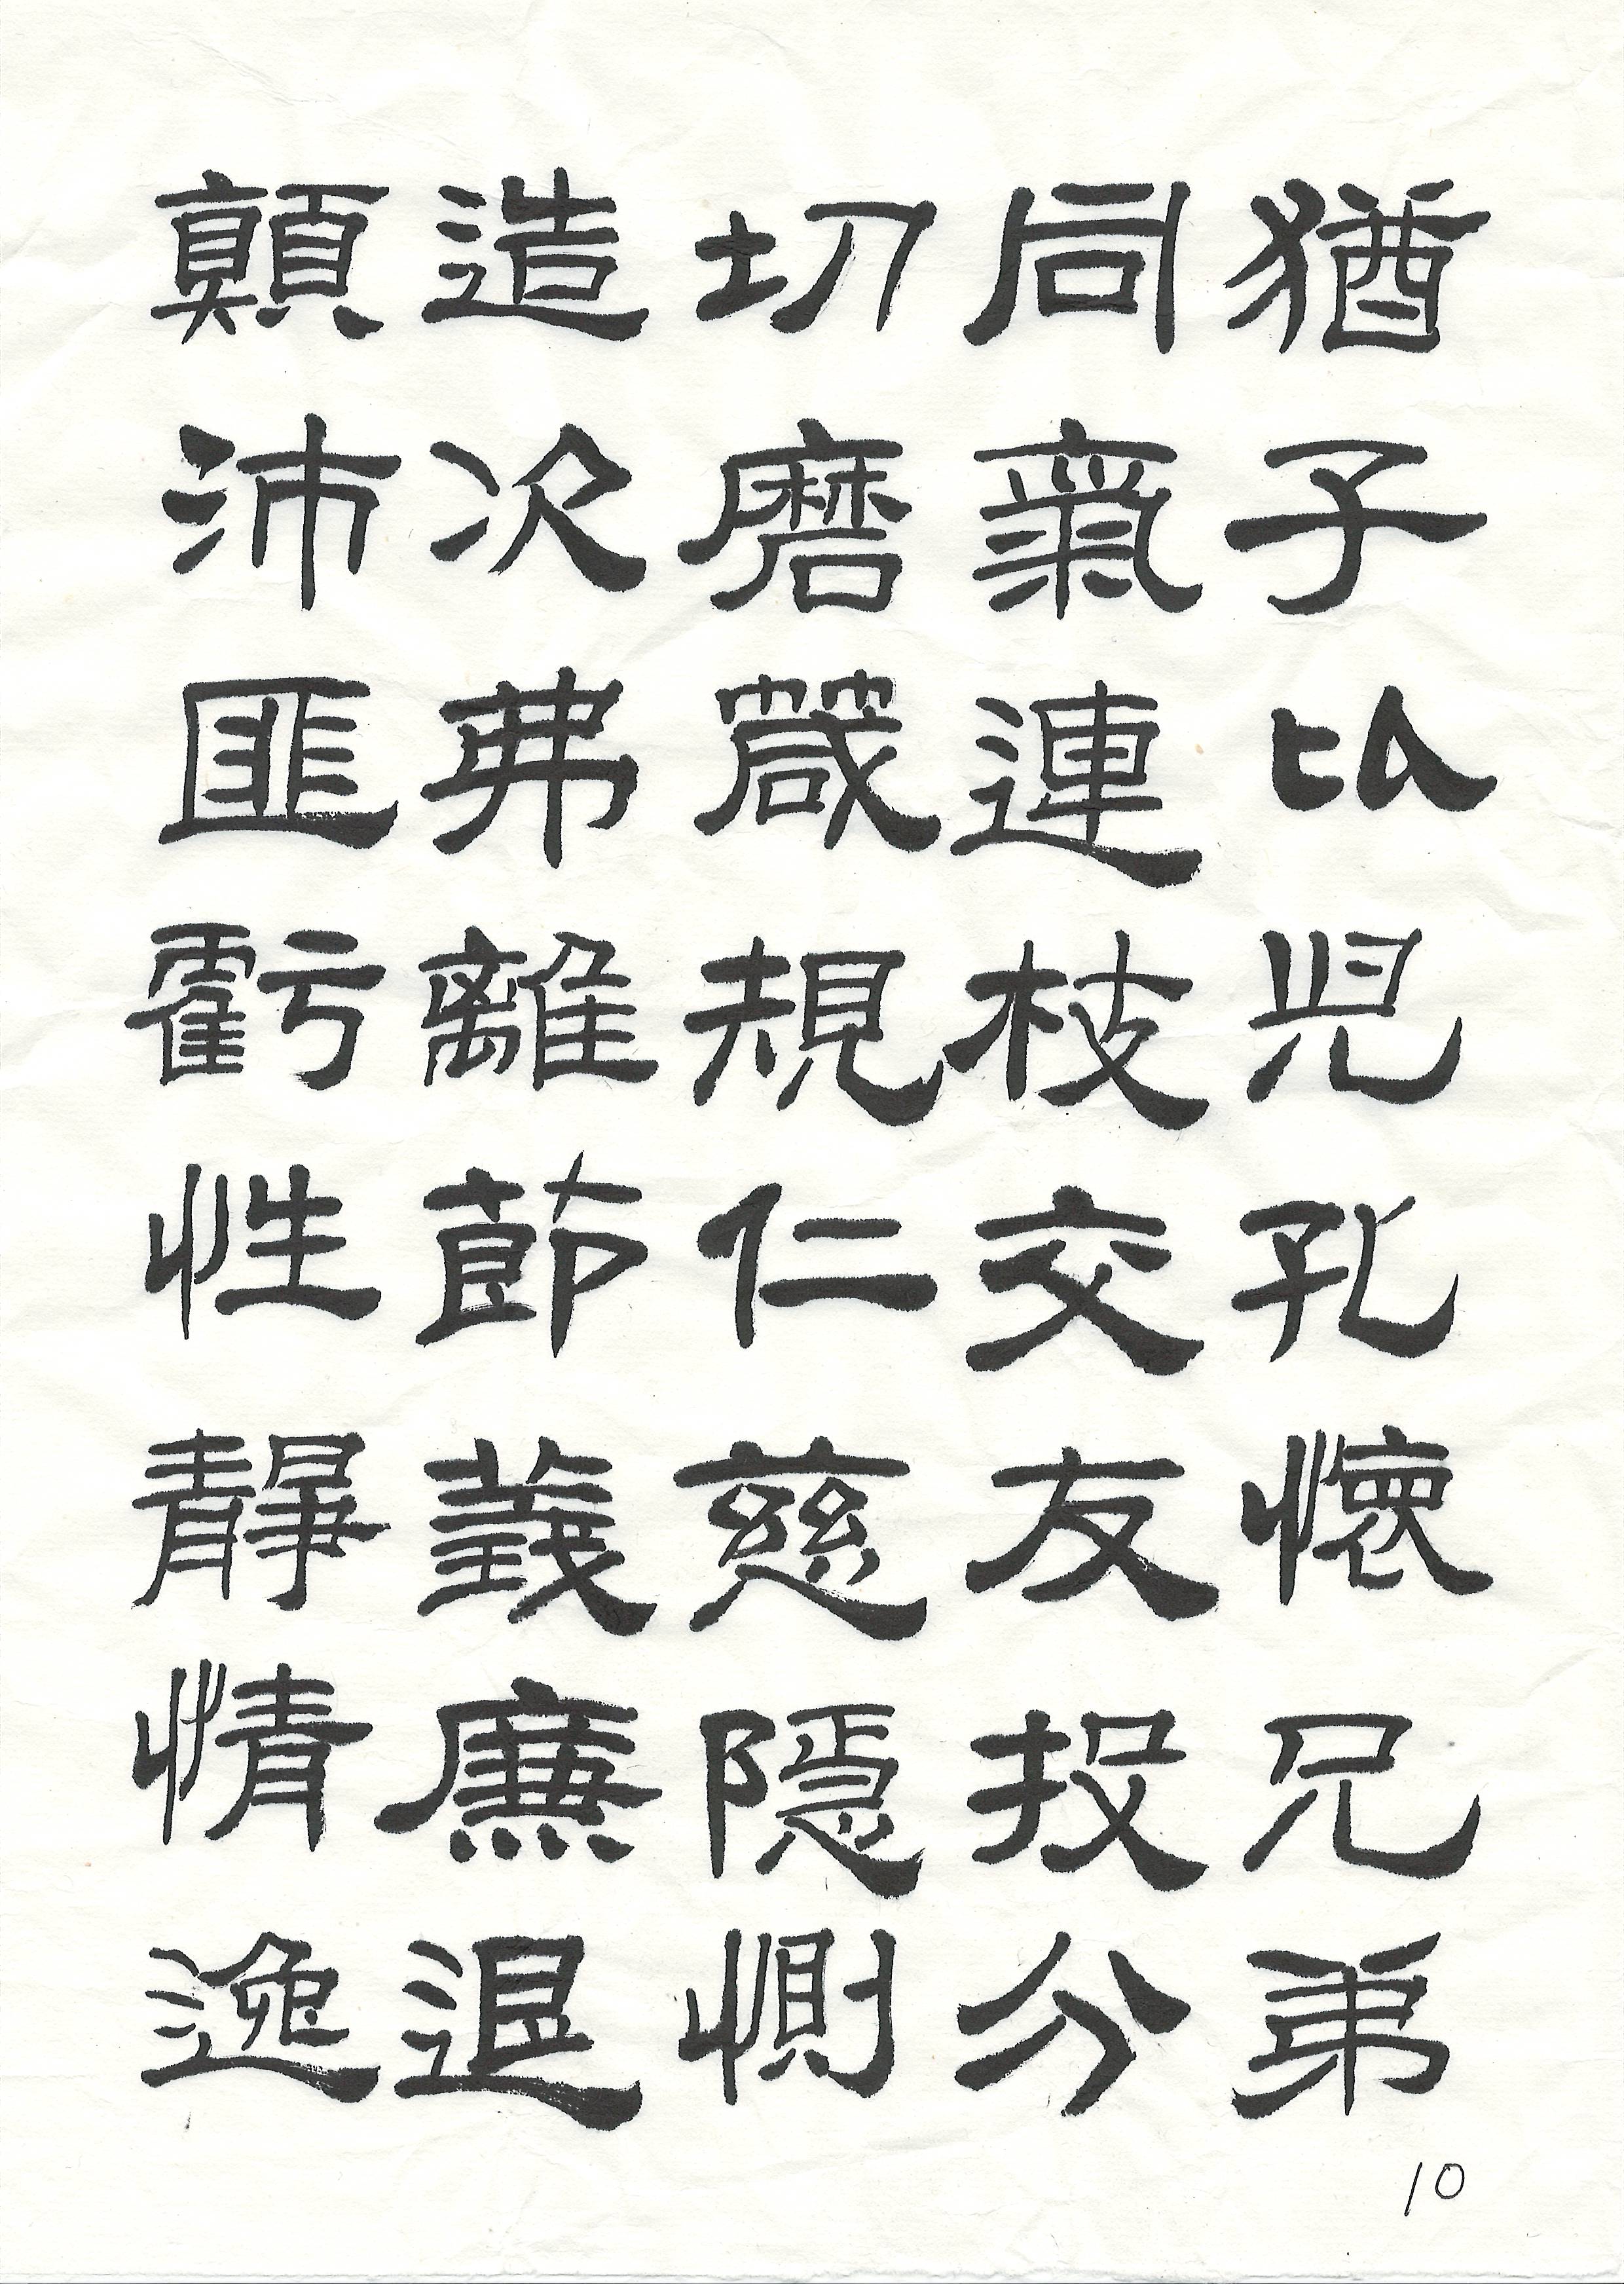 猶子比兒孔懷兄弟
同氣連枝交友投分
切磨箴規仁慈隱惻
造次弗離節義廉退
顛沛匪虧性靜情逸
10